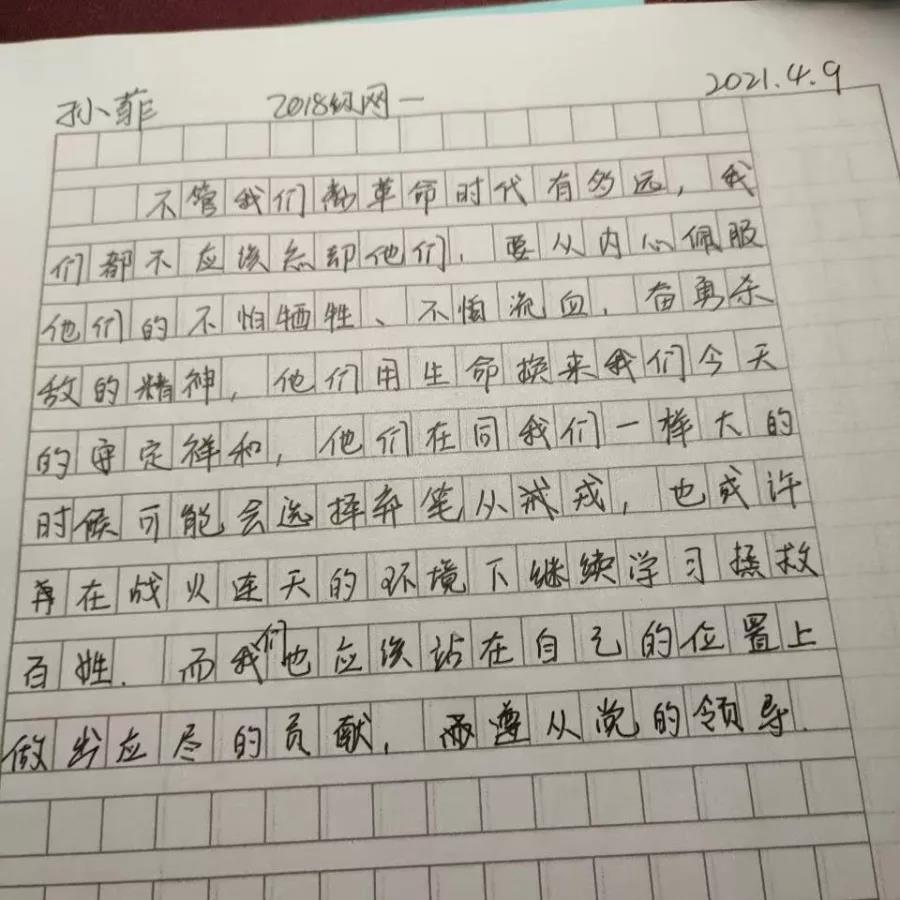 孙菲 2018级网一 2021.4.9
不管我们离革命时代有多远，我
们都不应该忘却他们，要从内心佩服
他们的不怕牺牲、不怕流血，奋勇杀
敌的精神，他们用生命换来我们今天
的安定祥和，他们在同我们一样大的
时候可能会选择弃笔从戎，也或许
再在战火连天的环境下继续学习拯救
百姓．而我们也应该站在自己的位置上
做出应尽的贡献，遵从党的领导．